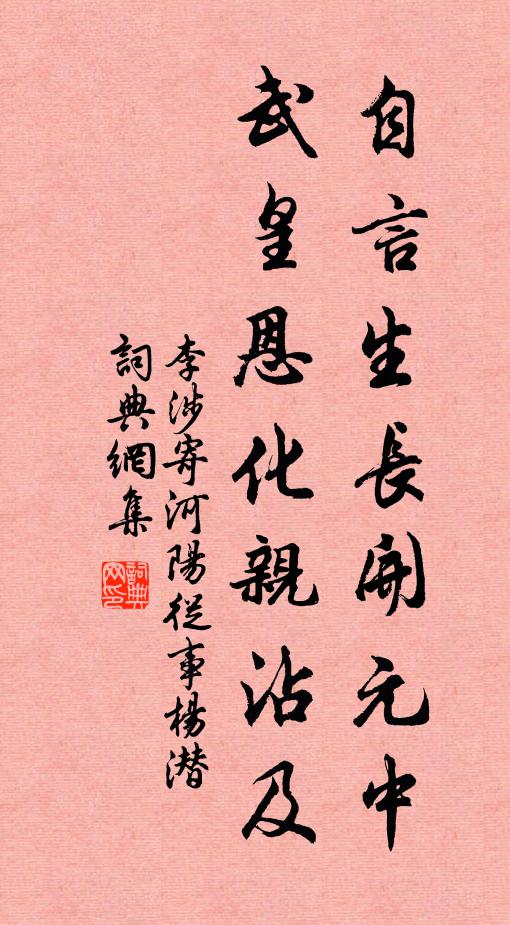 自言生長開元中
武皇恩化親沾及
李涉寄河陽從事楊潛
詞典網集
詞典
网印